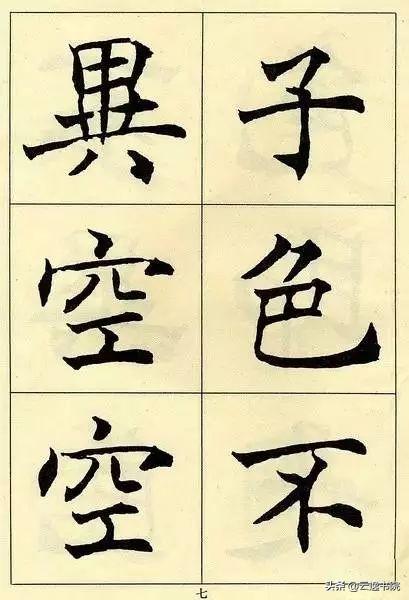 子色不
異空空
七
头条@云逸书院